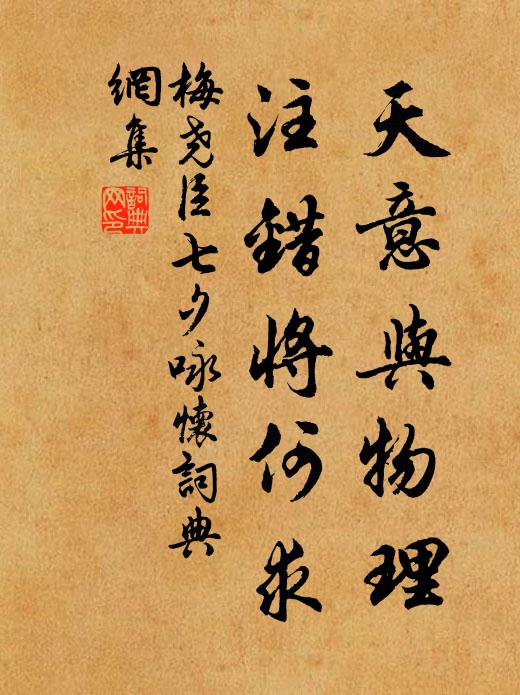 天意與物理
注錯將何求
梅堯臣七夕咏懷詞典
網集
詞典
网印